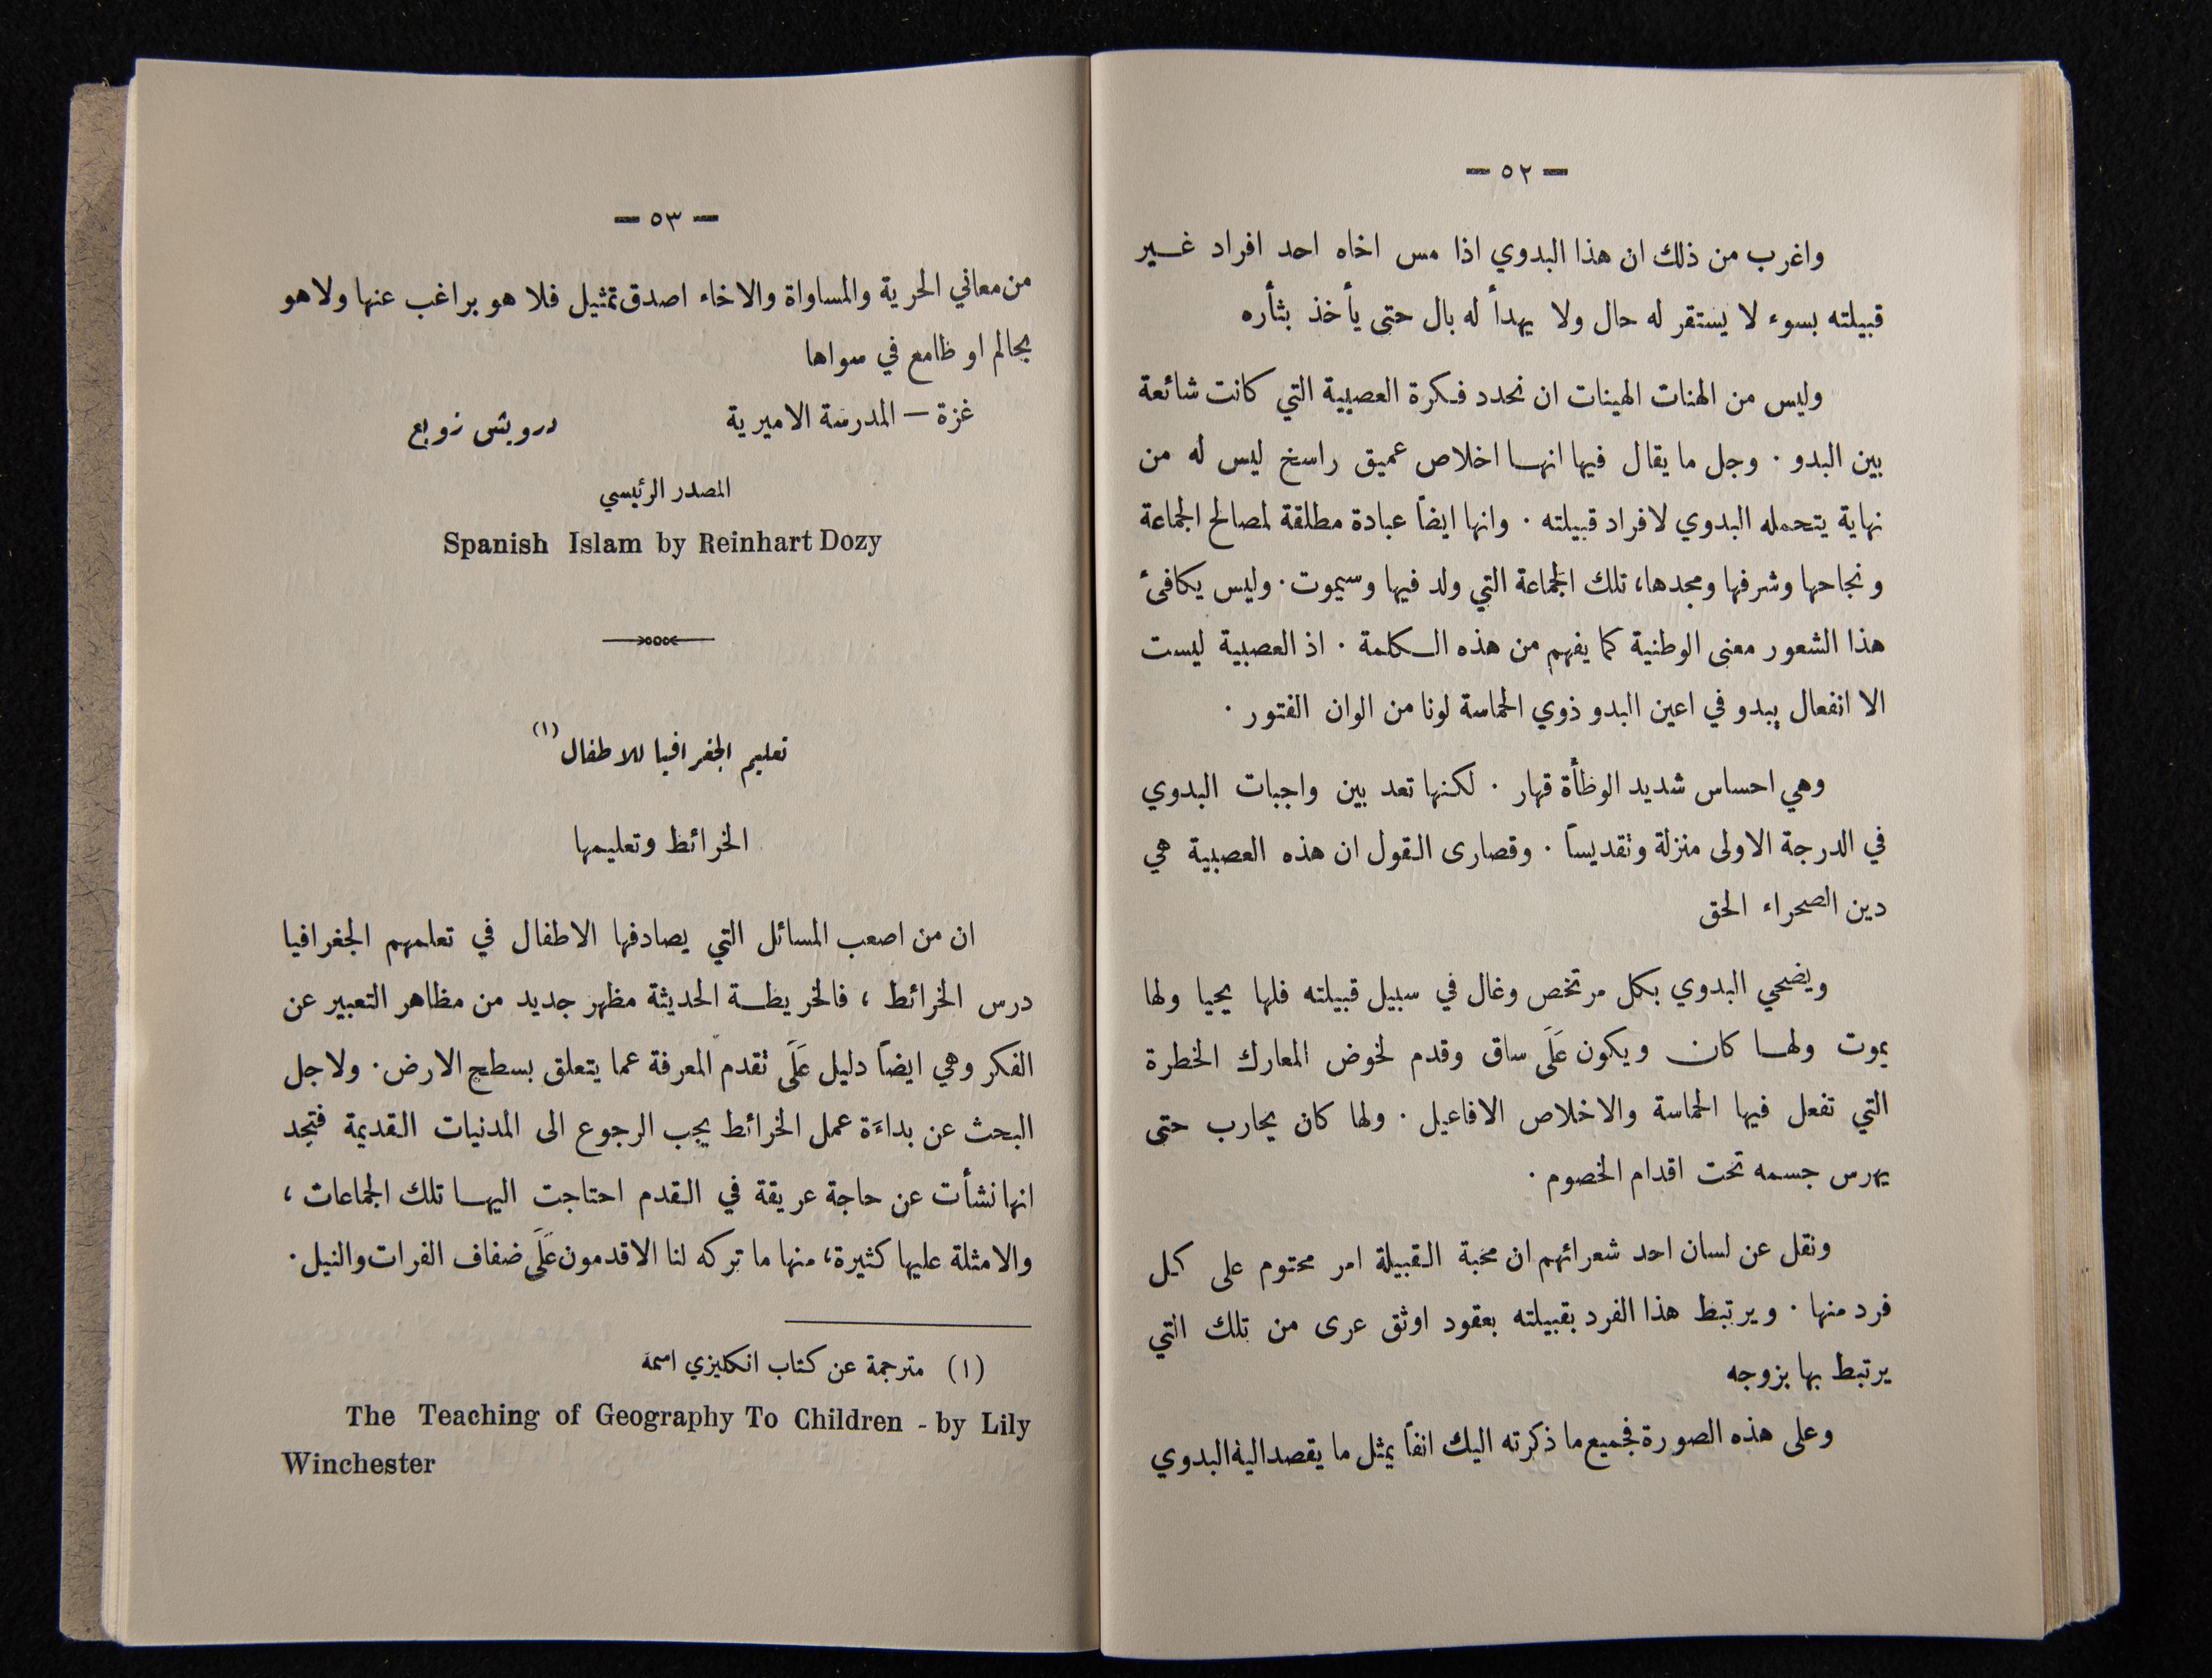 — ٥٢ —
واغرب من ذلك ان هذا البدوي اذا مس اخاه احد افراد غير
قبيلته بسوء لا يستقر له حال ولا يهدأ له بال حتى يأخذ بثأره
وليس من الهنات الهينات ان نحدد فكرة العصبية التي كانت شائعة
بين البدو . وجل ما يقال فيها انها اخلاص عميق راسخ ليس له من
نهاية يتحمله البدوي لافراد قبيلته . وانها ايضاً عبادة مطلقة لمصالح الجماعة
ونجاحها وشرفها ومجدها، تلك الجماعة التي ولد فيها وسيموت . وليس يكافئ
هذا الشعور معنى الوطنية كما يفهم من هذه الكلمة . اذ العصبية ليست
الا انفعال يبدو في اعين البدو ذوي الحماسة لونا من الوان الفتور .
وهي احساس شديد الوطأة قهار . لكنها تعد بين واجبات البدوي
في الدرجة الاولى منزلة وتقديساً . وقصارى القول ان هذه العصبية هي
دين الصحراء الحق
ويضحي البدوي بكل مرتخص وغال في سبيل قبيلته فلها يحيا ولها
يموت ولها كان ويكون عَلَى ساق وقدم لخوض المعارك الخطرة
التي تفعل فيها الحماسة والاخلاص الافاعيل . ولها كان يحارب حتى
يهرس جسمه تحت اقدام الخصوم .
ونقل عن لسان احد شعرائهم ان محبة القبيلة امر محتوم على كل
فرد منها . ويرتبط هذا الفرد بقبيلته بعقود اوثق عرى من تلك التي
يرتبط بها بزوجه
وعلى هذه الصورة فجميع ما ذكرته اليك انفاً يمثل ما يقصد اليه البدوي
— ٥٣ —
من معاني الحرية والمساواة والاخاء اصدق تمثيل فلا هو براغب عنها ولا هو
بحالم او طامع في سواها
غزة — المدرسة الاميرية درويش زوبع
المصدر الرئيسي
Spanish Islam by Reinhart Dozy
تعليم الجغرافيا للاطفال (١)
الخرائط وتعليمها
ان من اصعب المسائل التي يصادفها الاطفال في تعلمهم الجغرافيا
درس الخرائط ، فالخريطة الحديثة مظهر جديد من مظاهر التعبير عن
الفكر وهي ايضاً دليل عَلَى تقدم المعرفة عما يتعلق بسطح الارض . ولاجل
البحث عن بداءَة عمل الخرائط يجب الرجوع الى المدنيات القديمة فتجد
انها نشأت عن حاجة عريقة في القدم احتاجت اليها تلك الجماعات ،
والامثلة عليها كثيرة، منها ما تركه لنا الاقدمون عَلَى ضفاف الفرات والنيل .
(١) مترجمة عن كتاب انكليزي اسمه
The Teaching of Geography To Children - by Lily
Winchester